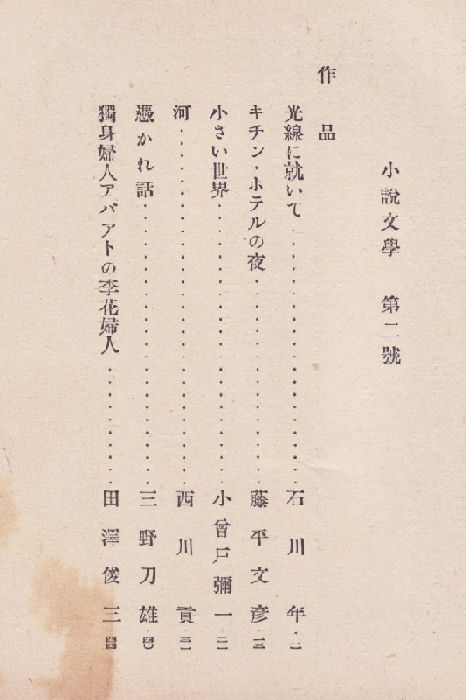 小說文學 第二號
作品
光線に就いて‥‥‥‥‥‥‥‥‥‥石川年
キチン・ホテルの夜‥‥‥‥‥‥‥‥藤平文彥
小さい世界‥‥‥‥‥‥‥‥‥‥‥小曾戸彌一
河‥‥‥‥‥‥‥‥‥‥‥‥‥‥西川貢
憑かれ話‥‥‥‥‥‥‥‥‥‥‥三野刀雄
獨身婦人アパアトの李花婦人‥‥‥‥‥田澤俊三